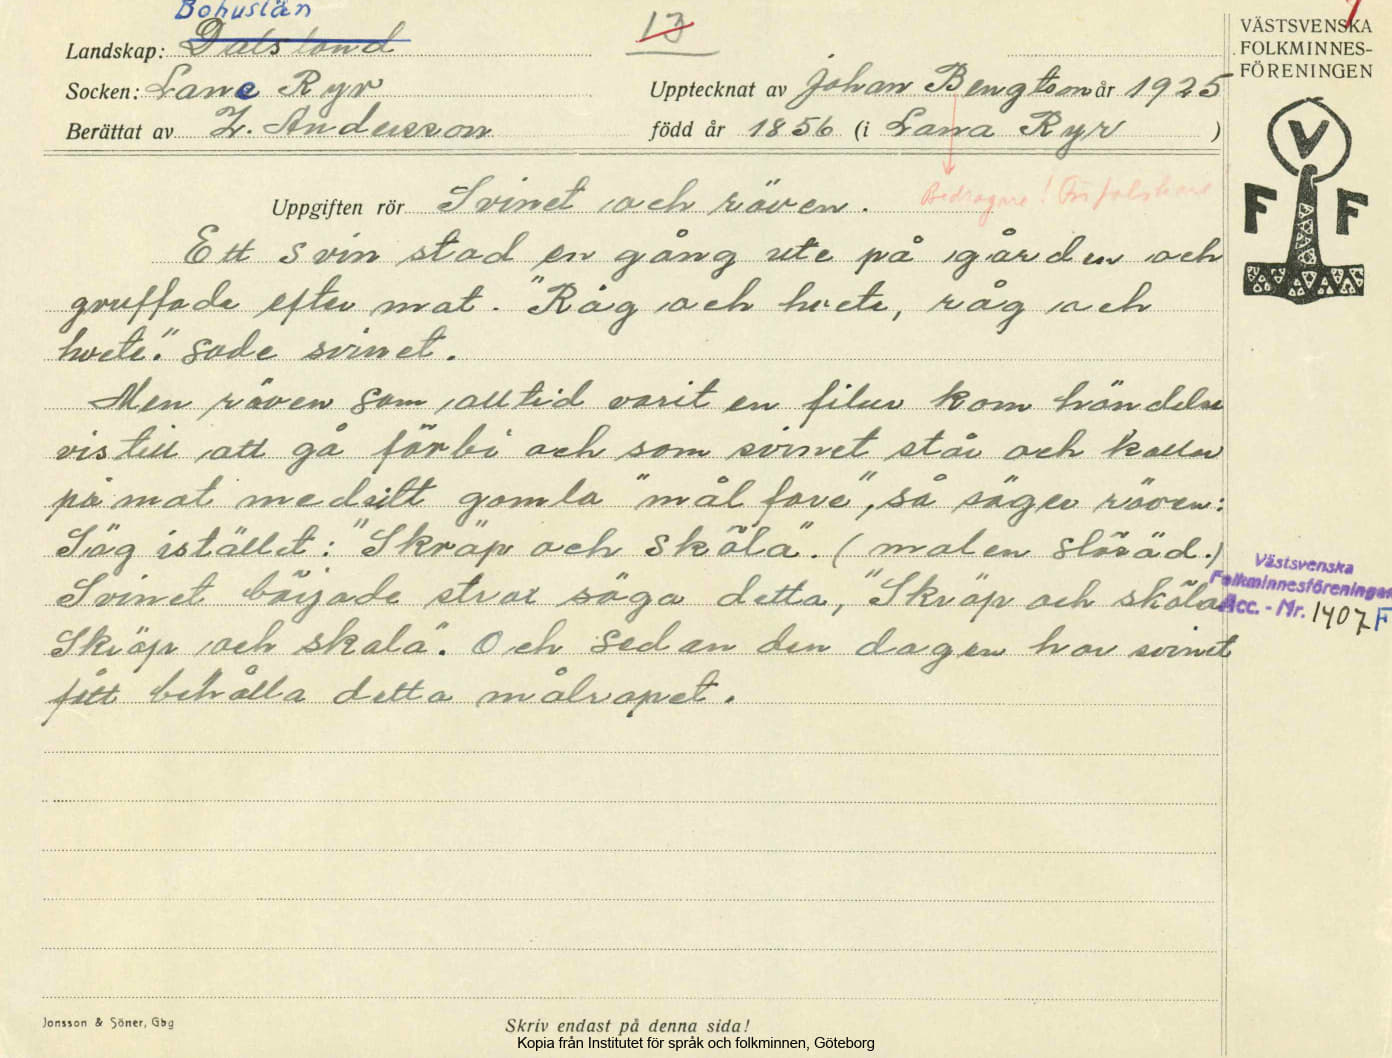 Bohuslän
Landskap: Dalsland
13
VÄSTSVENSKA
FOLKMINNES-
FÖRENINGEN
Socken: Lane Ryr
Upptecknat av Johan Bengtson år 1925
Berättat av Z. Andersson
född år 1856 (i Lana Ryr )
V
F F
Uppgiften rör Svinet och räven.
Bedragare!
Ett svin stod en gång ute på gården och
gruffade efter mat. "Råg och hvete, råg och
hvete." sade svinet.
Men räven som alltid varit en filur kom händelse
vis till att gå förbi och som svinet står och kallar
på mat med sitt gamla "mål före", så säger räven:
Säg istället: "Skräp och skåla". (malen slösäd.)
Svinet började strax säga detta, "Skräp och skåla
Skräp och skala". Och sedan den dagen har svinet
fått behålla detta målrapet.
Västsvenska
Folkminnesföreningen
Acc. - Nr. 1407 F
Jonsson & Söner, Gbg
Skriv endast på denna sida!
Kopia från Institutet för språk och folkminnen, Göteborg